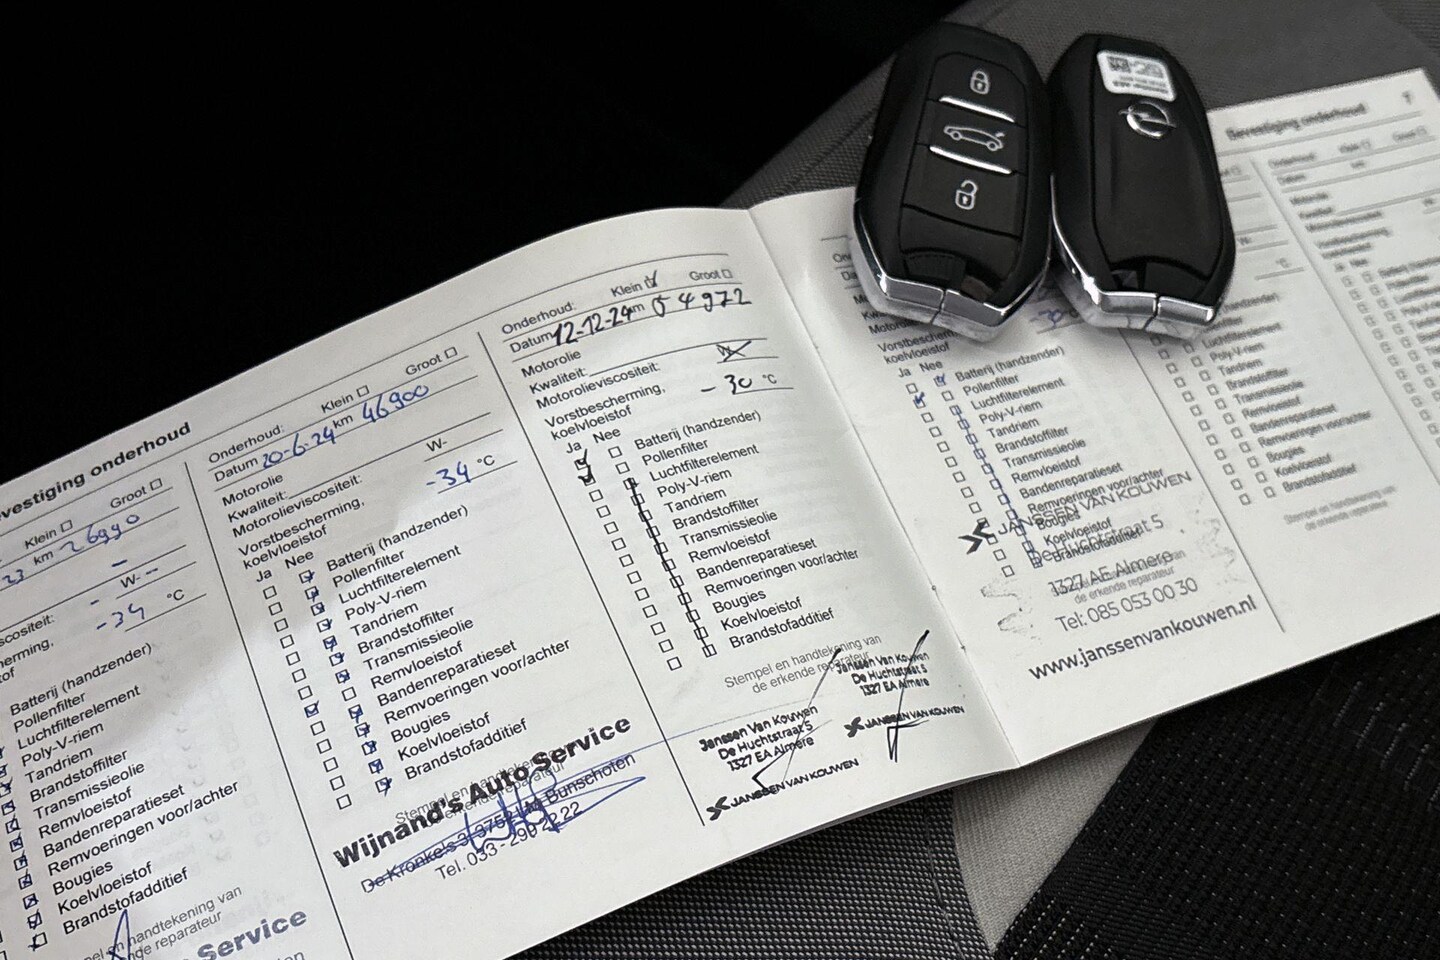 evestiging onderhoud
Klein Groot
23 km 26990
W- --
-34 °C
Batterij (handzender)
Pollenfilter
Luchtfilterelement
Poly-V-riem
Tandriem
Brandstoffilter
Transmissieolie
Remvloeistof
Bandenreparatieset
Remvoeringen voor/achter
Bougies
Koelvloeistof
Brandstofadditief
en handtekening van
erkende reparateur
Service
Onderhoud: Klein Groot
Datum 20-6-24 km 46900
Motorolie
Kwaliteit:
Motorolieviscositeit: W-
Vorstbescherming,
koelvloeistof -34 °C
Ja Nee
Batterij (handzender)
Pollenfilter
Luchtfilterelement
Poly-V-riem
Tandriem
Brandstoffilter
Transmissieolie
Remvloeistof
Bandenreparatieset
Remvoeringen voor/achter
Bougies
Koelvloeistof
Brandstofadditief
Stempel en handteke
erkende reparateur
Wijnand's Auto Service
De Kronkels Bunschoten
Tel. 033-299 22 22
Onderhoud: Klein Groot
Datum 12-12-24 km 54972
Motorolie
Kwaliteit: W-
Motorolieviscositeit:
Vorstbescherming,
koelvloeistof -30 °C
Ja Nee
Batterij (handzender)
Pollenfilter
Luchtfilterelement
Poly-V-riem
Tandriem
Brandstoffilter
Transmissieolie
Remvloeistof
Bandenreparatieset
Remvoeringen voor/achter
Bougies
Koelvloeistof
Brandstofadditief
Stempel en handtekening van
de erkende reparateur
Janssen Van Kouwen
De Huchtstraat 5
1327 EA Almere
JANSSEN VAN KOUWEN
Janssen Van Kouwen
De Huchtstraat 5
1327 EA Almere
JANSSEN VAN KOUWEN
Vorstbescherming
koelvloeistof 30
Ja Nee
Batterij (handzender)
Pollenfilter
Luchtfilterelement
Poly-V-riem
Tandriem
Brandstoffilter
Transmissieolie
Remvloeistof
Bandenreparatieset
Remvoeringen voor/achter
Bougies
Koelvloeistof
Brandstofadditief
JANSSEN VAN KOUWEN
De Huchtstraat 5
1327 AE Almere
de erkende reparateur
Tel: 085 053 00 30
www.janssenvankouwen.nl
Bevestiging onderhoud 7
°C
(handzender)
Pollenfilter
Luchtfilterelement
Poly-V-riem
Tandriem
Brandstoffilter
Transmissieolie
Remvloeistof
Bandenreparatieset
Remvoeringen voor/achter
Bougies
Koelvloeistof
Brandstofadditief
Stempel en handtekening van
de erkende reparateur